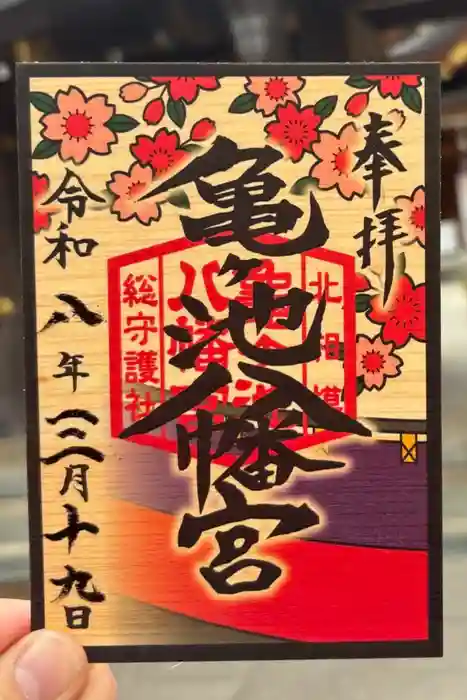 奉拝
亀ヶ池八幡宮
北相模
亀ヶ池
八幡宮
総守護社
令和八年三月十九日